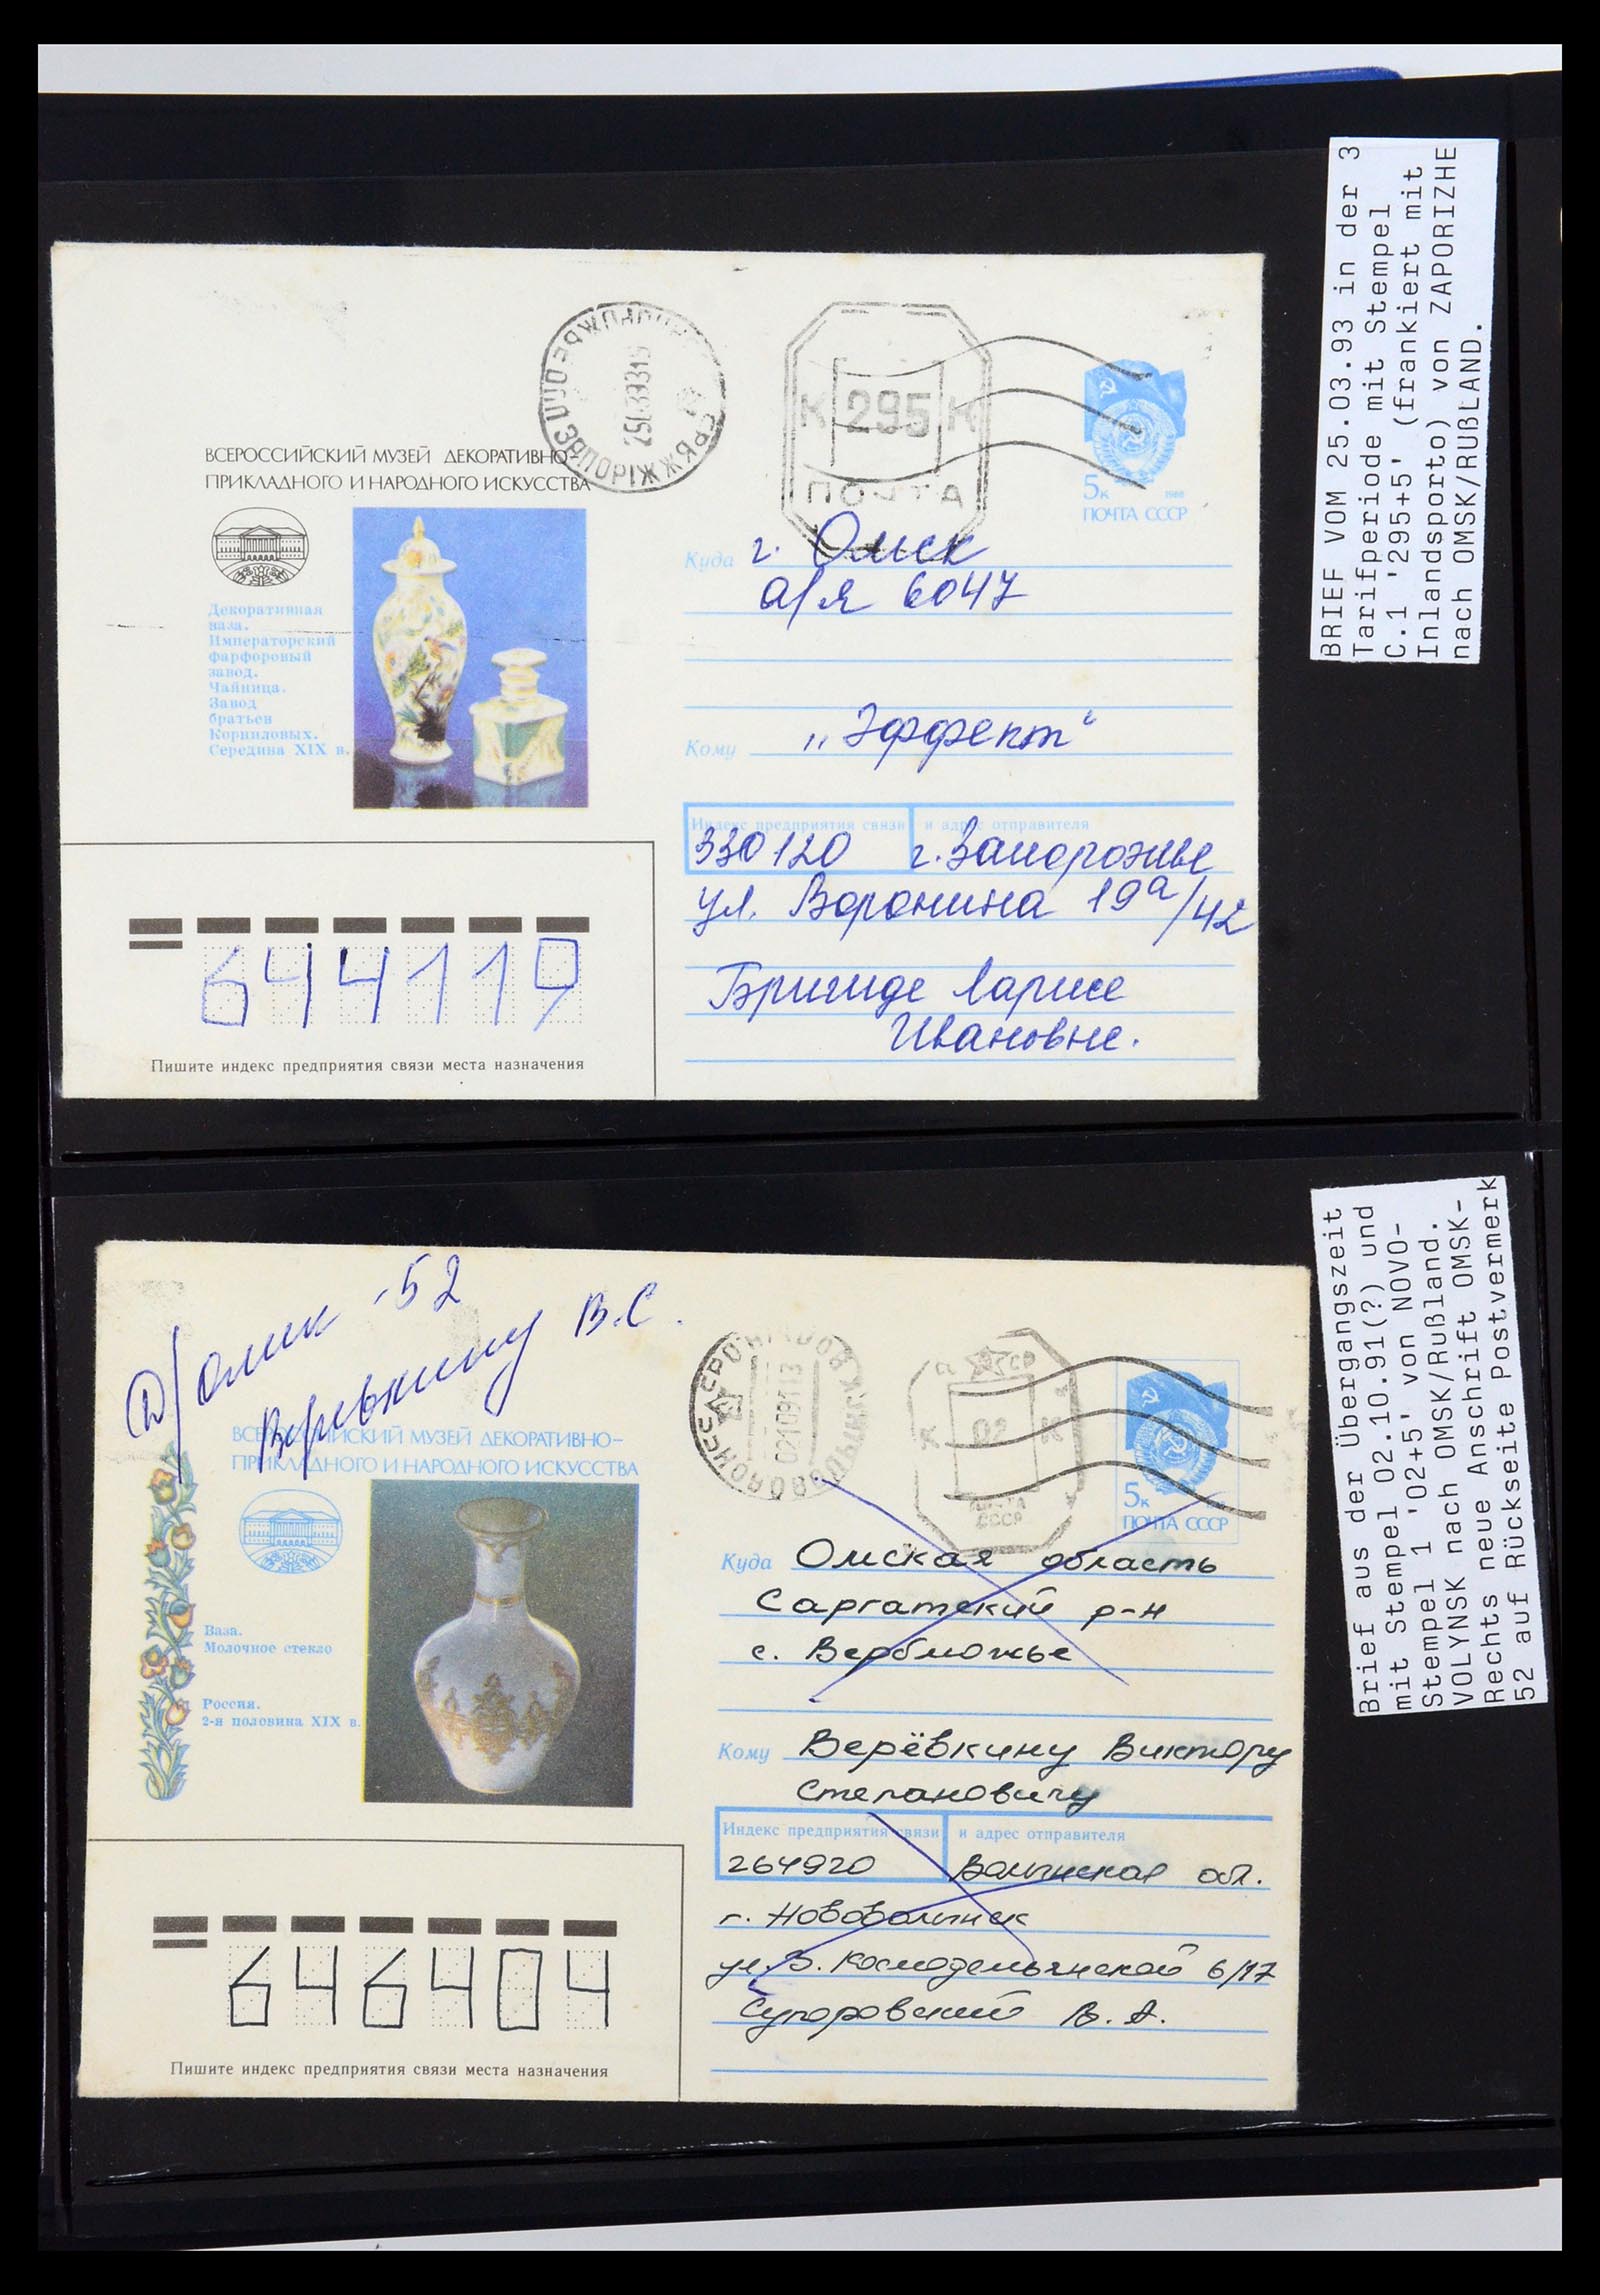 BRIEF VOM 25.03.93 in der 3
Tarifperiode mit Stempel
C.1 '295+5' (frankiert mit
Inlandsporto) von ZAPORIZHE
nach OMSK/RUßLAND.
ВСЕРОССИЙСКИЙ МУЗЕЙ ДЕКОРАТИВНО-
ПРИКЛАДНОГО И НАРОДНОГО ИСКУССТВА
Декоративная
ваза.
Императорский
фарфоровый
завод.
Чайница.
Завод
братьев
Корниловых.
Середина XIX в.
К 295 К
ПОЧТА
5к 1988
ПОЧТА СССР
Куда г. Омск
а/я 6047
Кому „Эффект“
Индекс предприятия связи и адрес отправителя
330120 г. Запорожье
ул. Воронина 19а/42
Бригиде Ларисе
Ивановне.
644119
Пишите индекс предприятия связи места назначения
Brief aus der Übergangszeit
mit Stempel 02.10.91(?) und
Stempel 1 '02+5' von NOVO-
VOLYNSK nach OMSK/RUßland.
Rechts neue Anschrift OMSK-
52 auf Rückseite Postvermerk
Омск-52
Верёвкину В.С.
ВСЕРОССИЙСКИЙ МУЗЕЙ ДЕКОРАТИВНО-
ПРИКЛАДНОГО И НАРОДНОГО ИСКУССТВА
Ваза.
Молочное стекло
Россия.
2-я половина XIX в.
К 02 К
ПОЧТА
СССР
5к
ПОЧТА СССР
Куда Омская область
Саргатский р-н
с.
Кому Верёвкину Виктору
Степановичу
Индекс предприятия связи и адрес отправителя
264920 Волынская обл.
г. Нововолынск
ул. З. Космодемьянской 6/17
Супоровский В. А.
646404
Пишите индекс предприятия связи места назначения